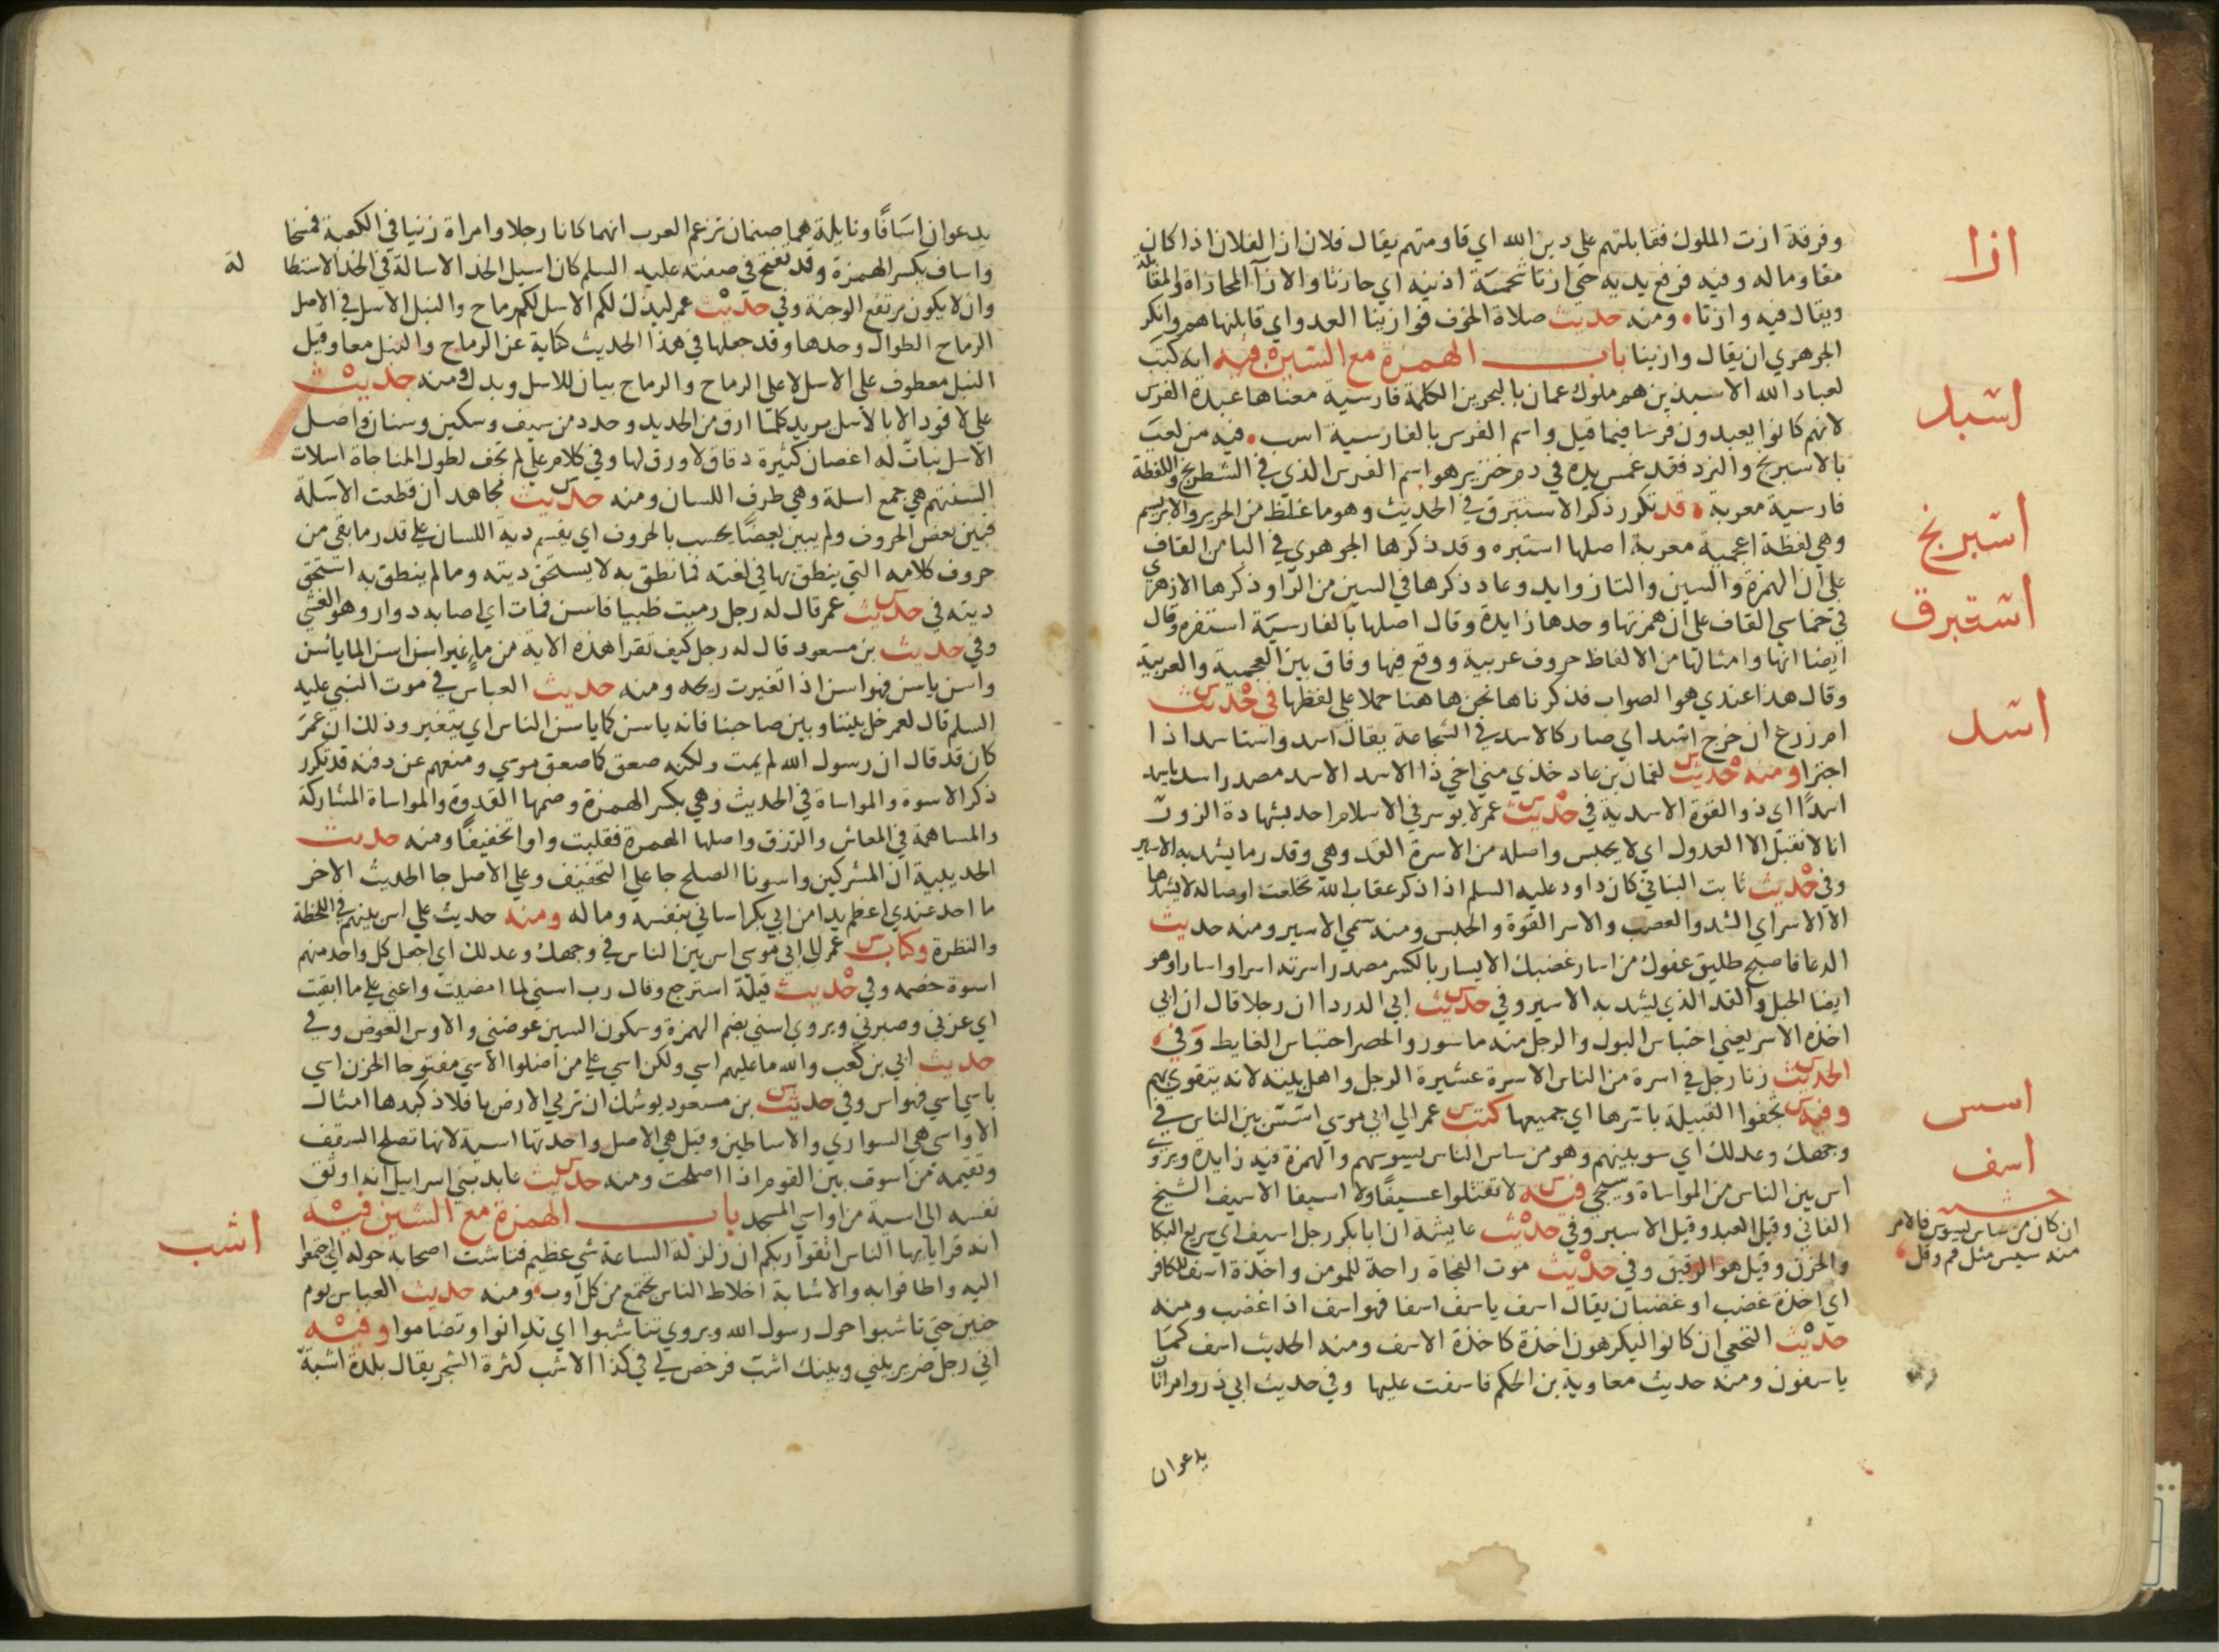 وفرقة ازت الملوك فقابلتهم على دين الله اي قاومتهم يقال فلان ازا لفلان اذا كان
ازا
مقاوما له وفيه فرفع يديه حتى ازتا شحمة اذنيه اي حازتا والازآ المحاذاة والمقابلة
ويقال فيه وازتا ومنه حديث صلاة الخوف فوازينا العدو اي قابلناهم وانكر
الجوهري ان يقال وازينا باب الهمزة مع السين فيه انه كتب
لعباد الله الاسبذين هم ملوك عمان بالبحرين الكلمة فارسية معناها عبدة الفرس
اسبد
لانهم كانوا يعبدون فرسا فيما قيل واسم الفرس بالفارسية اسب فيه من لعب
بالاسبرنج والنرد فقد غمس يده في دم خنزير هو اسم الفرس الذي في الشطرنج واللفظة
فارسية معربة قد تكرر ذكر الاستبرق في الحديث وهو ما غلظ من الحرير والابريسم
اسبرنج
وهي لفظة اعجمية معربة اصلها استبره وقد ذكرها الجوهري في البا من القاف
على ان الهمزة والسين والتا زوايد وعاد ذكرها في السين من الرا وذكرها الازهري
استبرق
في خماسي القاف على ان همزتها وحدها زايدة وقال اصلها بالفارسية استفره وقال
ايضا انها وامثالها من الالفاظ حروف عربية ووقع فيها وفاق بين العجمية والعربية
وقال هذا عندي هو الصواب فذكرناها نحن هاهنا حملا على لفظها في حديث
ام زرع ان خرج اسد اي صار كالاسد في الشجاعة يقال اسد واستاسد اذا
اسد
اجترا ومنه حديث لقمان بن عاد خذي مني اخي ذا الاسد الاسد مصدر اسد ياسد
اسدًا اي ذو القوة الاسدية في حديث عمر لا يوسر في الاسلام احد بشهادة الزور
انا لا نقبل الا العدول اي لا يحبس واصله من الاسرة القد وهي وقدر ما يشد به الاسير
وفي حديث ثابت البناني كان داود عليه السلم اذا ذكر عقاب الله تخلعت اوصاله لا يشدها
الا الاسر اي الشد والعصب والاسر القوة والحبس ومنه سمي الاسير ومنه حديث
الدعا فاصبح طليق عفوك من اسار غضبك الايسار بالكسر مصدر اسرته اسرا واسارا وهو
ايضا الحبل والقد الذي يشد به الاسير وفي حديث ابي الدردا ان رجلا قال ان ابي
اخذه الاسر يعني احتباس البول والرجل منه ماسور والحصر احتباس الغايط وفي
الحديث زنا رجل في اسرة من الناس الاسرة عشيرة الرجل واهل بيته لانه يتقوي بهم
وفيه تجفوا القبيلة باسرها اي جميعها كتب عمر الي ابي موسي اسس بين الناس في
اسس
وجهك وعدلك اي سو بينهم وهو من ساس الناس يسوسهم والهمزة فيه زايدة ويروي
اس بين الناس من المواساة وسيجي فيه لا تقتلوا عسيفًا ولا اسيفا الاسيف الشيخ
اسف
الفاني وقيل العبد وقيل الاسير وفي حديث عايشة ان ابا بكر رجل اسيف اي سريع البكا
ان كان من ساس يسوس فالامر
منه سس مثل قم وقل
والحزن وقيل هو الرقيق وفي حديث موت الفجاة راحة للمومن واخذة اسف للكافر
اي اخذة غضب او غضبان يقال اسف ياسف اسفا فهو اسف اذا غضب ومنه
حديث النخعي ان كانوا ليكرهون اخذة كاخذة الاسف ومنه الحديث اسف كما
ياسفون ومنه حديث معاوية بن الحكم فاسفت عليها وفي حديث ابي ذر وامراتان
يدعوان
يدعوان اسَافًا ونايلة هما صنمان تزعم العرب انهما كانا رجلا وامراة زنيا في الكعبة فمسخا
واساف بكسر الهمزة وقد تفتح في صفته عليه السلم كان اسيل الخد الاسالة في الخد الاستطالة
وان لا يكون مرتفع الوجنة وفي حديث عمر ليذك لكم الاسل لكم رماح والنبل الاسل في الاصل
الرماح الطوال وحدها وقد جعلها في هذا الحديث كناية عن الرماح والنبل معا وقيل
النبل معطوف على الاسل لا على الرماح والرماح بيان للاسل وبدل ومنه حديث
علي لا قود الا بالاسل يريد كلما ارق من الحديد وحدد من سيف وسكين وسنان واصل
الاسل نبات له اغصان كثيرة دقاق ولا ورق لها وفي كلام علي لم تجف لطول المناجاة اسلات
السنتهم هي جمع اسلة وهي طرف اللسان ومنه حديث مجاهد ان قطعت الاسلة
فبين بعض الحروف ولم يبين بعضًا يحسب بالحروف اي يقسم دية اللسان على قدر ما بقي من
حروف كلامه التي ينطق بها في لغته فما نطق به لا يستحق ديته وما لم ينطق به استحق
ديته في حديث عمر قال له رجل رميت ظبيا فاسن فمات اي اصابه دوار وهو الغشي
وفي حديث بن مسعود قال له رجل كيف تقرا هذه الاية من ماء غير اسن اسن الما ياسن
واسن ياسن فهو اسن اذا تغيرت ريحه ومنه حديث العباس في موت النبي عليه
السلم قال لعمر خل بيننا وبين صاحبنا فانه ياسن كما ياسن الناس اي يتغير وذلك ان عمر
كان قد قال ان رسول الله لم يمت ولكنه صعق كما صعق موسي ومنعهم عن دفنه قد تكرر
ذكر الاسوة والمواساة في الحديث وهي بكسر الهمزة وضمها القدوة والمواساة المشاركة
والمساهمة في المعاش والرزق واصلها الهمزة فقلبت واوا تخفيفًا ومنه حديث
الحديبية ان المشركين واسونا الصلح جا على التخفيف وعلى الاصل جا الحديث الاخر
ما احد عندي اعظم يدا من ابي بكر اساني بنفسه وماله ومنه حديث علي اس بينهم في اللحظة
والنظرة وكتاب عمر الي ابي موسي اس بين الناس في وجهك وعدلك اي اجعل كل واحد منهم
اسوة خصمه وفي حديث قيلة استرجع وقال رب اسني لما امضيت واعني على ما ابقيت
اي عزني وصبرني ويروي اسني بضم الهمزة وسكون السين عوضني والاوس العوض وفي
حديث ابي بن كعب والله ما عليهم اسي ولكن اسي على من اضلوا الاسي مفتوحا الحزن اسي
ياسي اسي فهو اس وفي حديث بن مسعود يوشك ان ترمي الارض بافلاذ كبدها امثال
الاواسي هي السواري والاساطين وقيل هي الاصل واحدتها اسية لانها تصلح السقف
وتقيمه من اسوت بين القوم اذا اصلحت ومنه حديث عابد بني اسراييل انه اوثق
نفسه الى اسية من اواسي المسجد باب الهمزة مع الشين فيه
اشب
انه قرا يايها الناس اتقوا ربكم ان زلزلة الساعة شي عظيم فتاشب اصحابه حوله اي اجتمعوا
اليه واطافوا به والاشابة اخلاط الناس تجتمع من كل اوب ومنه حديث العباس يوم
حنين حتي تاشبوا حول رسول الله ويروي تناشبوا اي تدانوا وتضاموا وفيه
اني رجل ضرير بيني وبينك اشب فرخص لي في كذا الاشب كثرة الشجر يقال بلدة اشبة